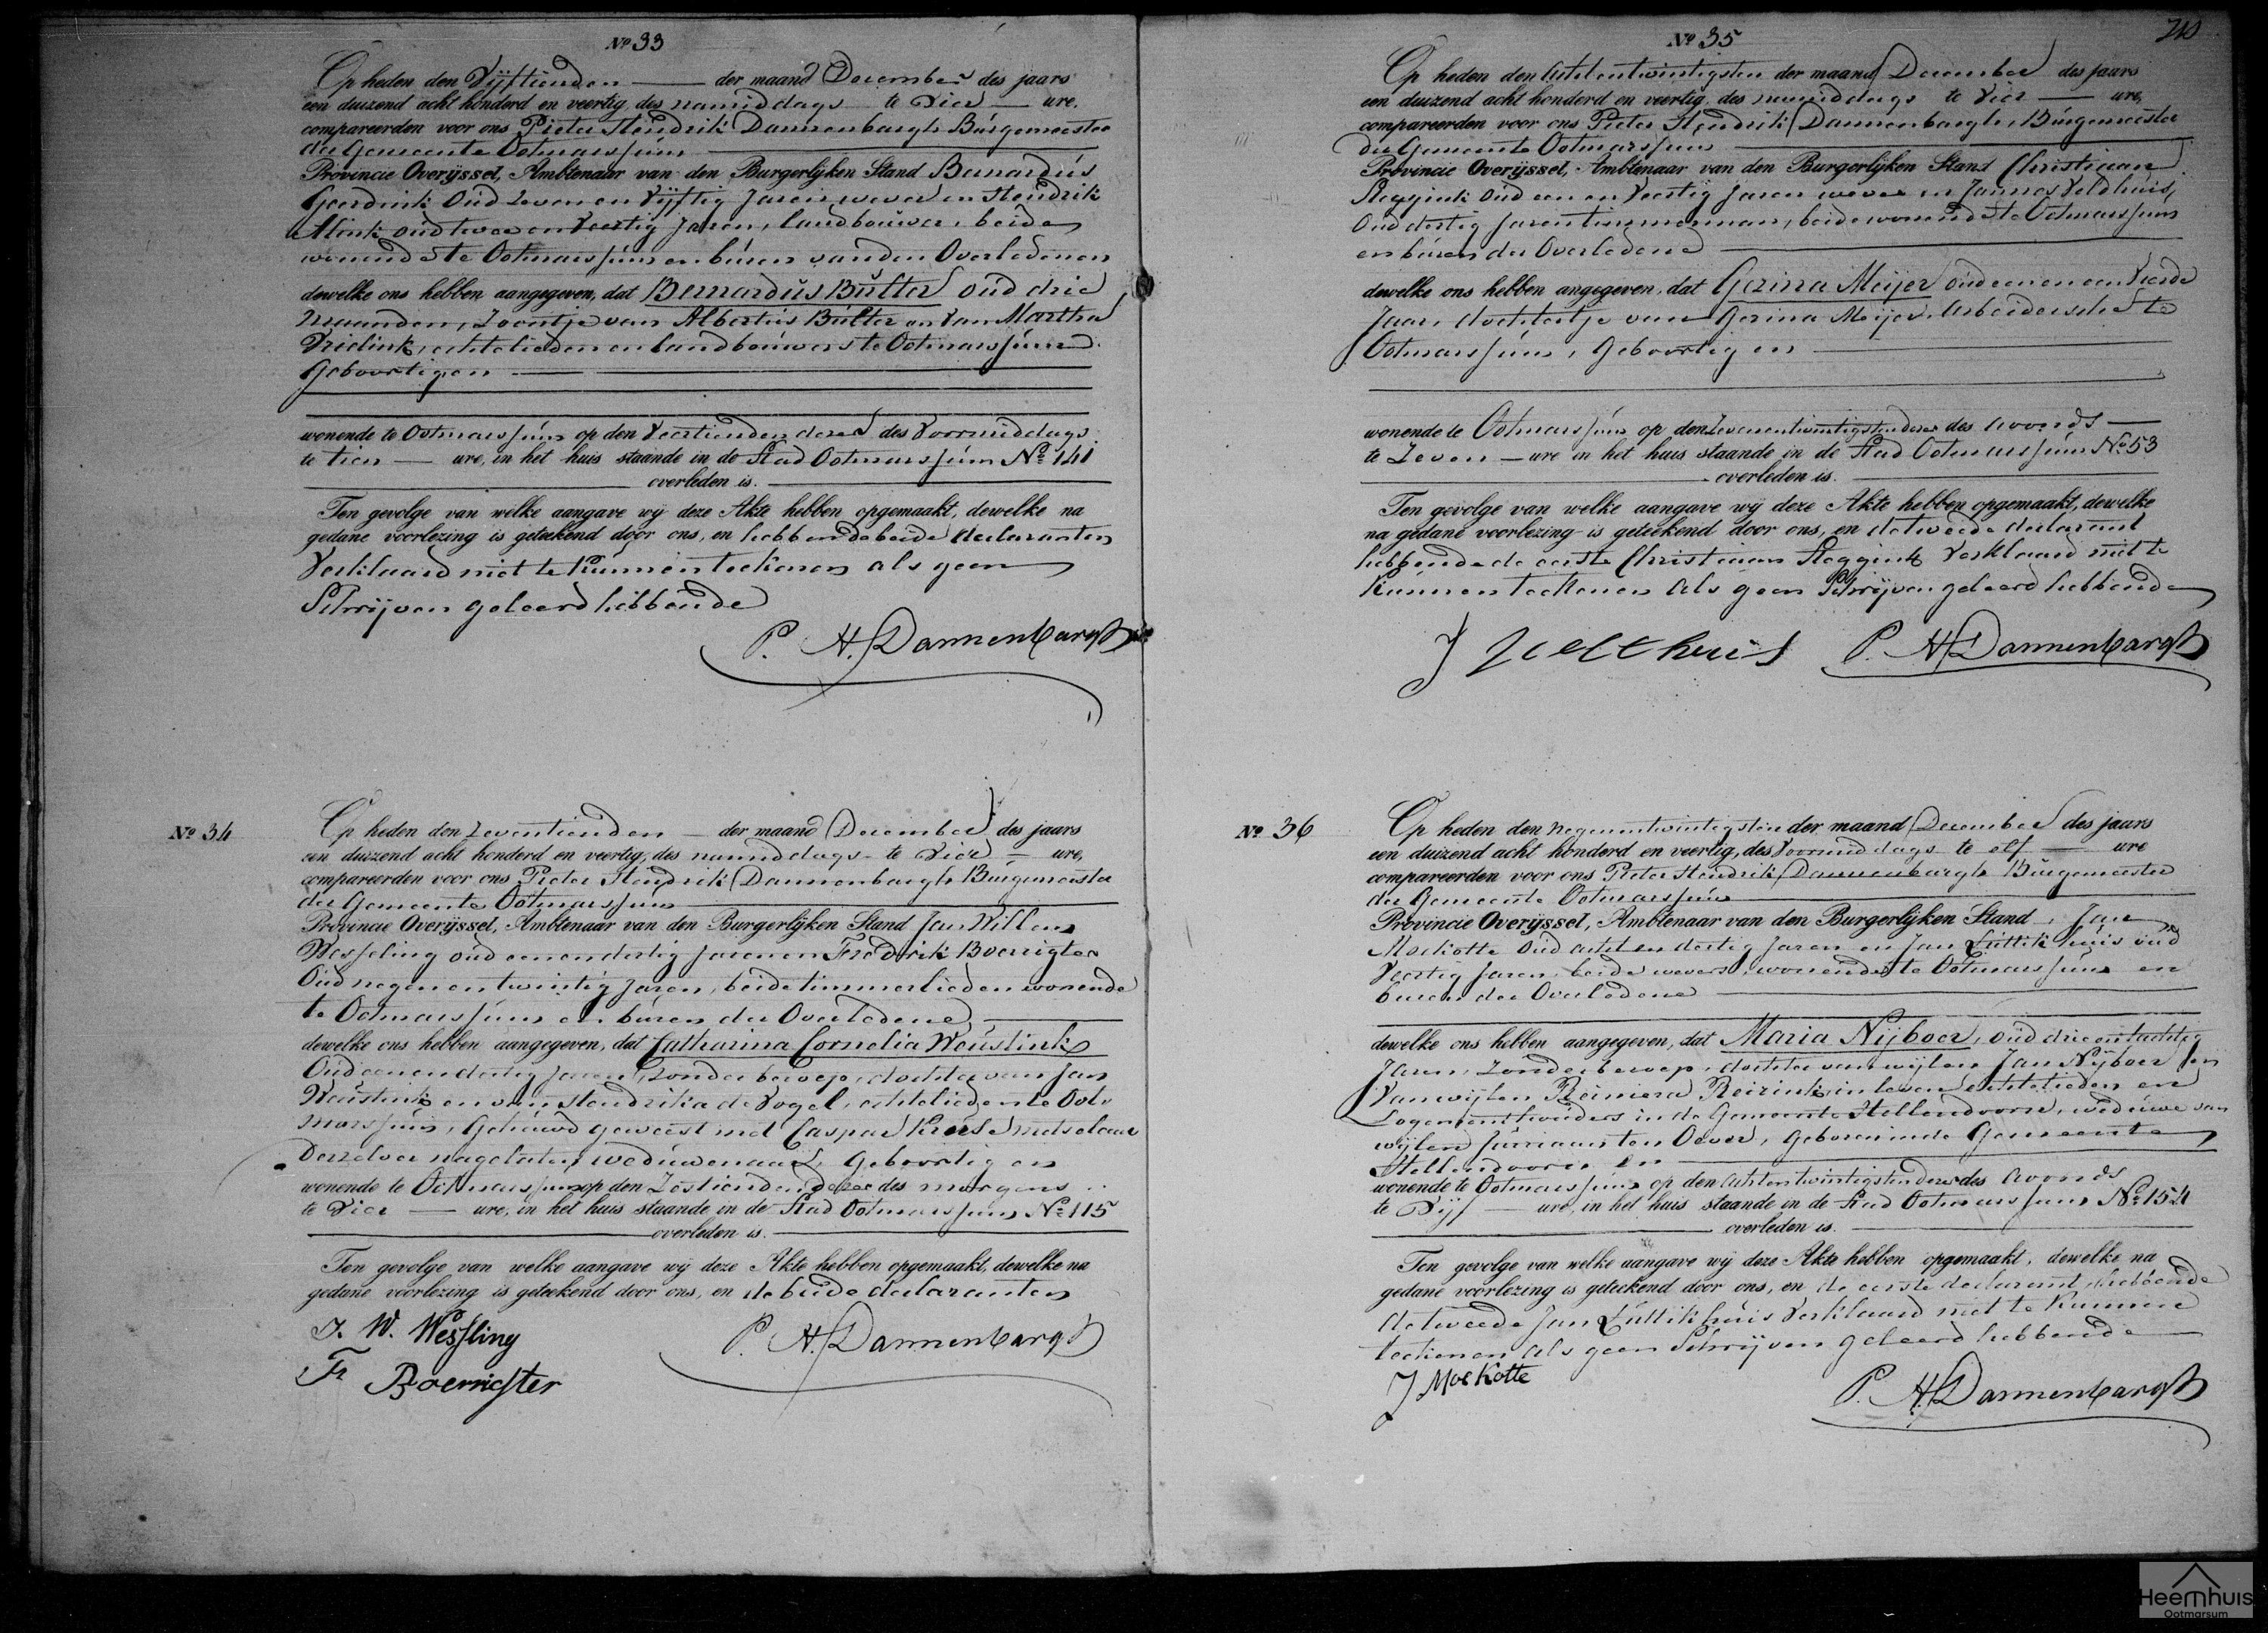 Nº 33
Op heden den Vijftienden der maand December des jaars
een duizend acht honderd en veertig, des namiddags te Vier ure,
compareerden voor ons Pieter Hendrik Dannenbargh Burgemeester
der Gemeente Ootmarssum
Provincie Overijssel, Ambtenaar van den Burgerlijken Stand Bernardus
Geerdink Oud zeven en Vijftig Jaren wever en Hendrik
Alink oud twee en Veertig Jaren, landbouwer, beide
wonende te Ootmarssum en buren van den Overledenen
dewelke ons hebben aangegeven, dat Bernardus Bulter oud drie
maanden, Zoontje van Albertus Bulter en van Martha
Vrielink, echtelieden en landbouwers te Ootmarssum
Geboortig en
wonende te Ootmarssum op den Veertienden dezer des Voormiddags
te tien ure, in het huis staande in de Stad Ootmarssum Nº 141
overleden is.
Ten gevolge van welke aangave wij deze Akte hebben opgemaakt, dewelke na
gedane voorlezing is geteekend door ons, en hebbende beide declaranten
Verklaard niet te kunnen teekenen als geen
Schrijven geleerd hebbende
P. H. Dannenbargh
Nº 34
Op heden den Zeventienden der maand December des jaars
een duizend acht honderd en veertig, des namiddags te Vier ure,
compareerden voor ons Pieter Hendrik Dannenbargh Burgemeester
der Gemeente Ootmarssum
Provincie Overijssel, Ambtenaar van den Burgerlijken Stand Jan Willem
Wesseling oud eenendertig jaren en Fredrik Boerrigter
Oud negenentwintig Jaren, beide timmerlieden wonende
te Ootmarssum en buren der Overledene
dewelke ons hebben aangegeven, dat Catharina Cornelia Weustink
Oud eenendertig Jaren, zonder beroep, dochter van Jan
Weustink en van Hendrika de Vogel, echtelieden te Oot-
marssum, Gehuwd geweest met Caspar Kruse metselaar
Derzelver nagelaten weduwenaar, Geboortig en
wonende te Ootmarssum op den Zestienden dezer des morgens
te Vier ure, in het huis staande in de Stad Ootmarssum Nº 115
overleden is.
Ten gevolge van welke aangave wij deze Akte hebben opgemaakt, dewelke na
gedane voorlezing is geteekend door ons, en de beide declaranten
J. W. Wessling
P. H. Dannenbargh
Fr Boerrigter
210
Nº 35
Op heden den Achtentwintigsten der maand December des jaars
een duizend acht honderd en veertig, des namiddags te Vier ure,
compareerden voor ons Pieter Hendrik Dannenbargh, Burgemeester
der Gemeente Ootmarssum
Provincie Overijssel, Ambtenaar van den Burgerlijken Stand Christiaan
Steggink Oud een en Veertig Jaren wever en Jannes Veldhuis,
Oud dertig Jaren timmerman, beide wonende te Ootmarssum
en buren der Overledene
dewelke ons hebben angegeven, dat Gerina Meijer oud een en een Vierde
Jaar, dochtertje van Gerina Meijer, Arbeidersche te
Ootmarssum, Geboortig en
wonende te Ootmarssum op den Zevenentwintigsten dezer des Avonds
te Zeven ure in het huis staande in de Stad Ootmarssum Nº 53
overleden is.
Ten gevolge van welke aangave wij deze Akte hebben opgemaakt, dewelke
na gedane voorlezing is geteekend door ons, en de tweede declarant
hebbende de eerste Christiaan Steggink Verklaard niet te
kunnen teekenen als geen Schrijven geleerd hebbende
J Velthuis P. H. Dannenbargh
Nº 36
Op heden den negenentwintigsten der maand December des jaars
een duizend acht honderd en veertig, des Voormiddags te elf ure
compareerden voor ons Pieter Hendrik Dannenbargh Burgemeester
der Gemeente Ootmarssum
Provincie Overijssel, Ambtenaar van den Burgerlijken Stand, Jan
Mockotte Oud achtendertig Jaren en Jan Luttikhuis oud
Veertig Jaren, beide wevers, wonende te Ootmarssum en
buren der Overledene
dewelke ons hebben aangegeven, dat Maria Nijboer, oud drie en tachtig
Jaren, Zonder beroep, dochter van wijlen Jan Nijboer en
Van wijlen Reiniera Reirink, in leven echtelieden en
Logementhouders in de Gemeente Hellendoorn, weduwe van
wijlen Jurriaan ten Oever, Geboren in de Gemeente
Hellendoorn en
wonende te Ootmarssum op den Achtentwintigsten dezer des Avonds
te Vijf ure, in het huis staande in de Stad Ootmarssum Nº 154
overleden is.
Ten gevolge van welke aangave wij deze Akte hebben opgemaakt, dewelke na
gedane voorlezing is geteekend door ons, en de eerste declarant, hebbende
de tweede Jan Luttikhuis Verklaard niet te kunnen
teekenen als geen Schrijven geleerd hebbende
J Mockotte
P. H. Dannenbargh
Heemhuis
Ootmarsum